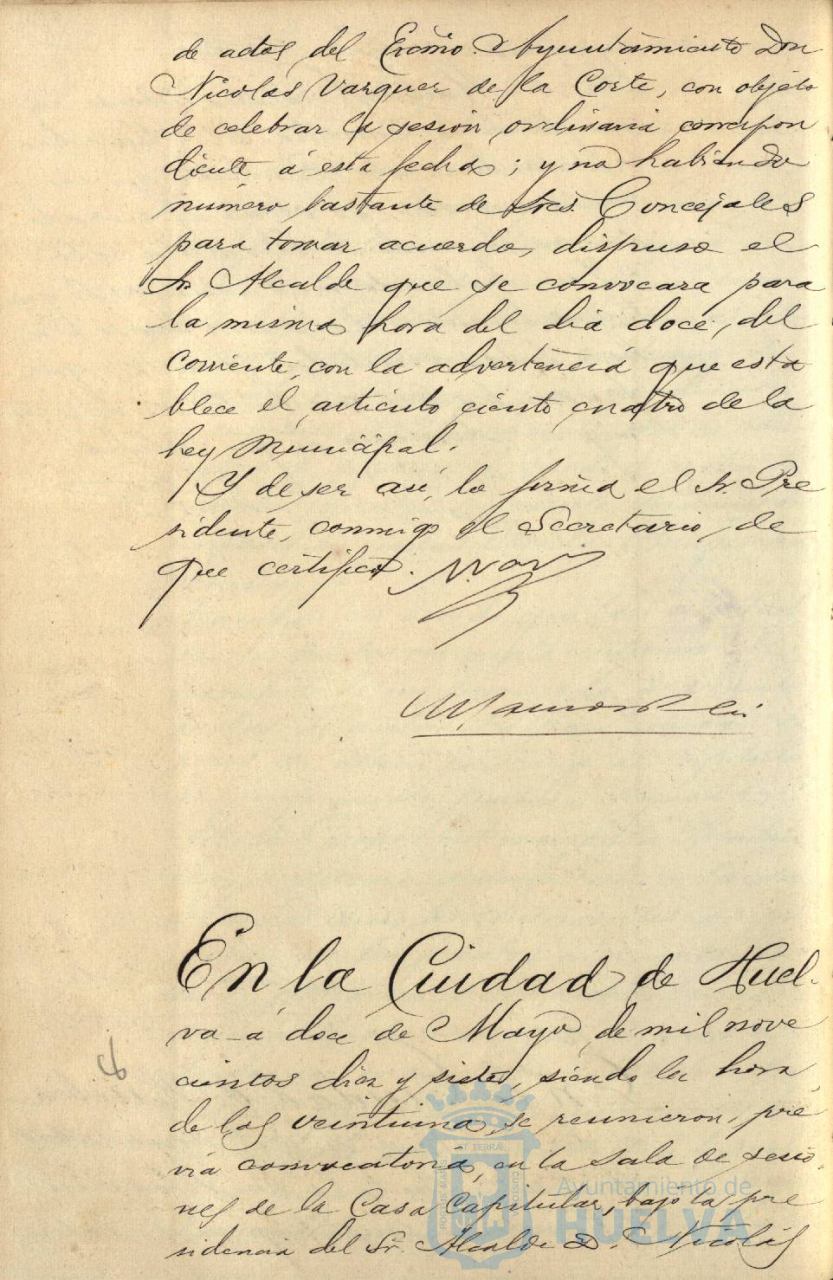 de actos del Excmo. Ayuntamiento Don
Nicolas Vazquez de la Corte, con objeto
de celebrar la sesión ordinaria correspon
diente á esta fecha; y no habiendo
número bastante de Sres. Concejales
para tomar acuerdo, dispuso el
Sr. Alcalde que se convocara para
la misma hora del dia doce, del
corriente, con la advertencia que esta
blece el artículo ciento cuatro de la
Ley Municipal.
Y de ser asi, lo firma el Sr. Pre
sidente, conmigo el Secretario, de
que certifico.
En la Ciudad de Huel-
va á doce de Mayo de mil nove
cientos diez y siete, siendo la hora
de las veintiuna, se reunieron, pre
via convocatoria, en la sala de sesio
nes de la Casa Capitular, bajo la pre
sidencia del Sr. Alcalde D. Nicolás
Ayuntamiento de
HUELVA